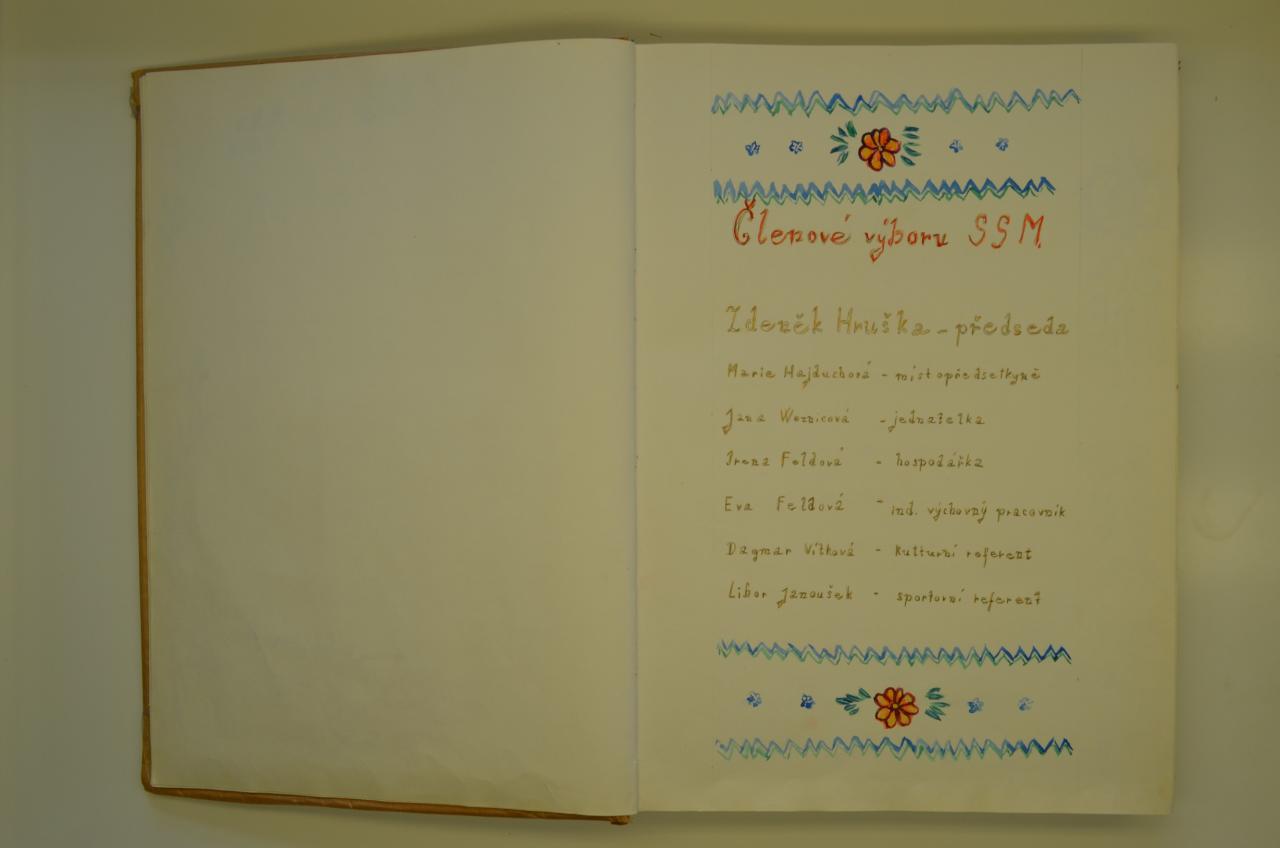 Členové výboru SSM
Zdeněk Hruška - předseda
Marie Hajduchová - místopředsetkyně
Jana Woznicová - jednatelka
Irena Feldová - hospodářka
Eva Feldová - ind. výchovný pracovník
Dagmar Vítková - kulturní referent
Libor Janoušek - sportovní referent